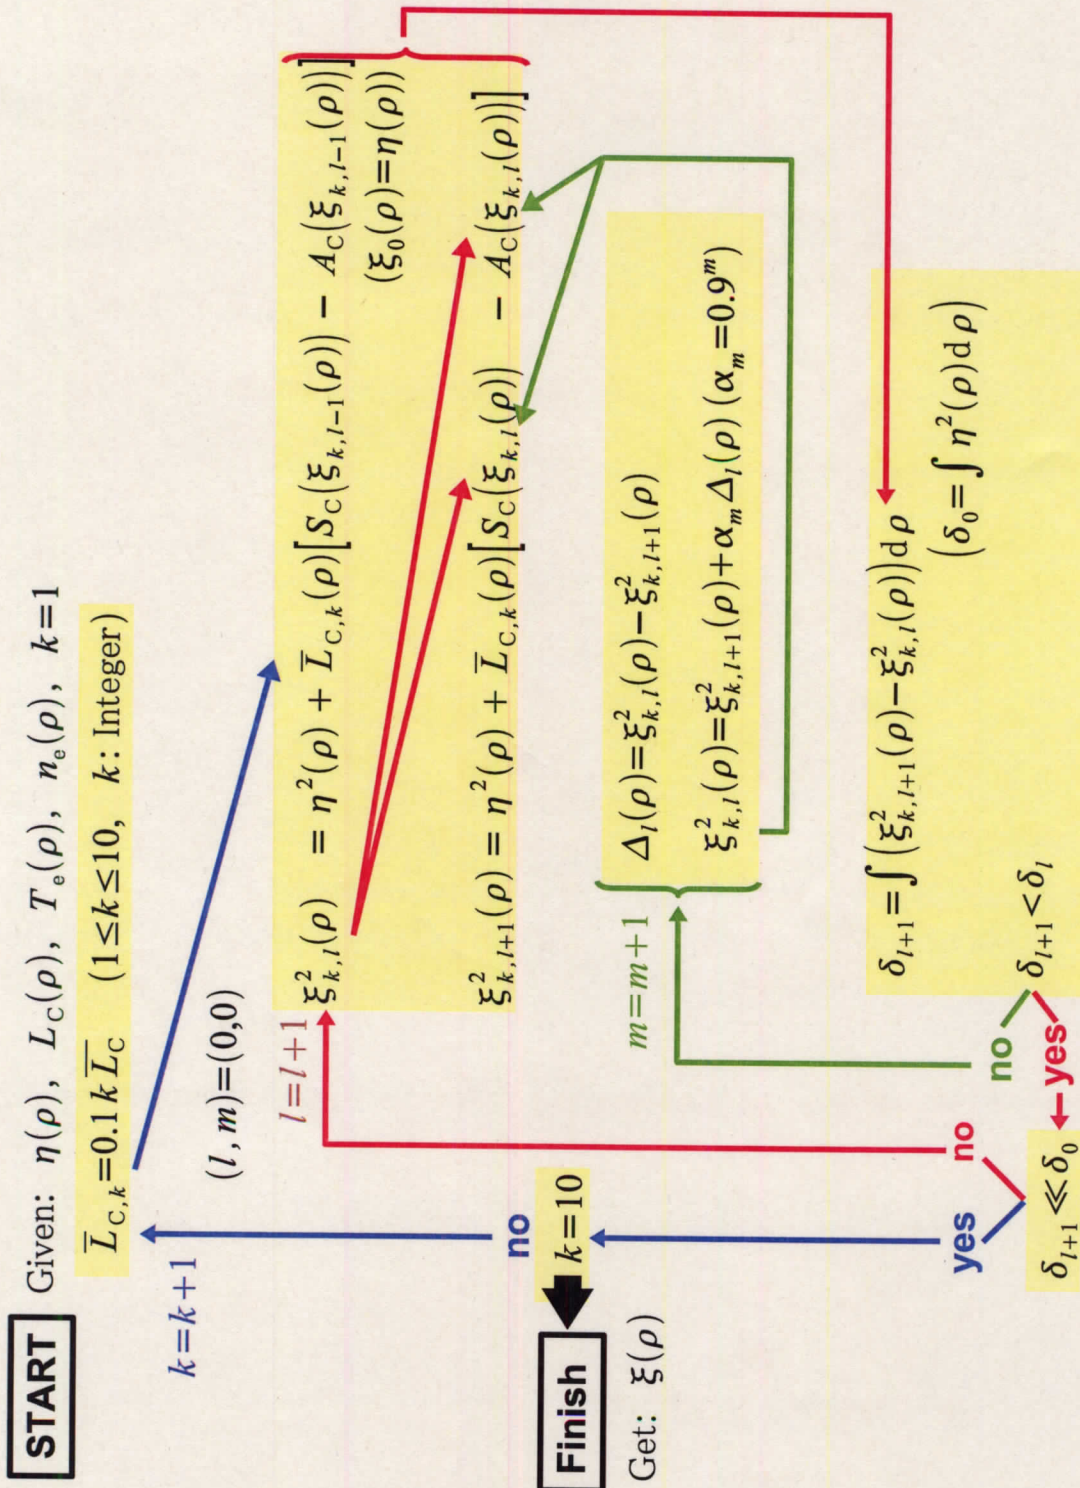 START
Given: η(ρ), L_C(ρ), T_e(ρ), n_e(ρ), k=1
L̅_{C,k}=0.1k L̅_C (1≤k≤10, k: Integer)
k=k+1
(l,m)=(0,0)
l=l+1
ξ²_{k,l}(ρ) = η²(ρ) + L̅_{C,k}(ρ)[S_C(ξ_{k,l−1}(ρ)) − A_C(ξ_{k,l−1}(ρ))]
(ξ_0(ρ)=η(ρ))
ξ²_{k,l+1}(ρ) = η²(ρ) + L̅_{C,k}(ρ)[S_C(ξ_{k,l}(ρ)) − A_C(ξ_{k,l}(ρ))]
no
k=10
Finish
Get: ξ(ρ)
m=m+1
Δ_l(ρ)=ξ²_{k,l}(ρ)−ξ²_{k,l+1}(ρ)
ξ²_{k,l}(ρ)=ξ²_{k,l+1}(ρ)+α_mΔ_l(ρ) (α_m=0.9^m)
δ_{l+1}=∫(ξ²_{k,l+1}(ρ)−ξ²_{k,l}(ρ))dρ
(δ_0=∫η²(ρ)dρ)
yes
no
no
yes
δ_{l+1}≪δ_0
δ_{l+1}<δ_l